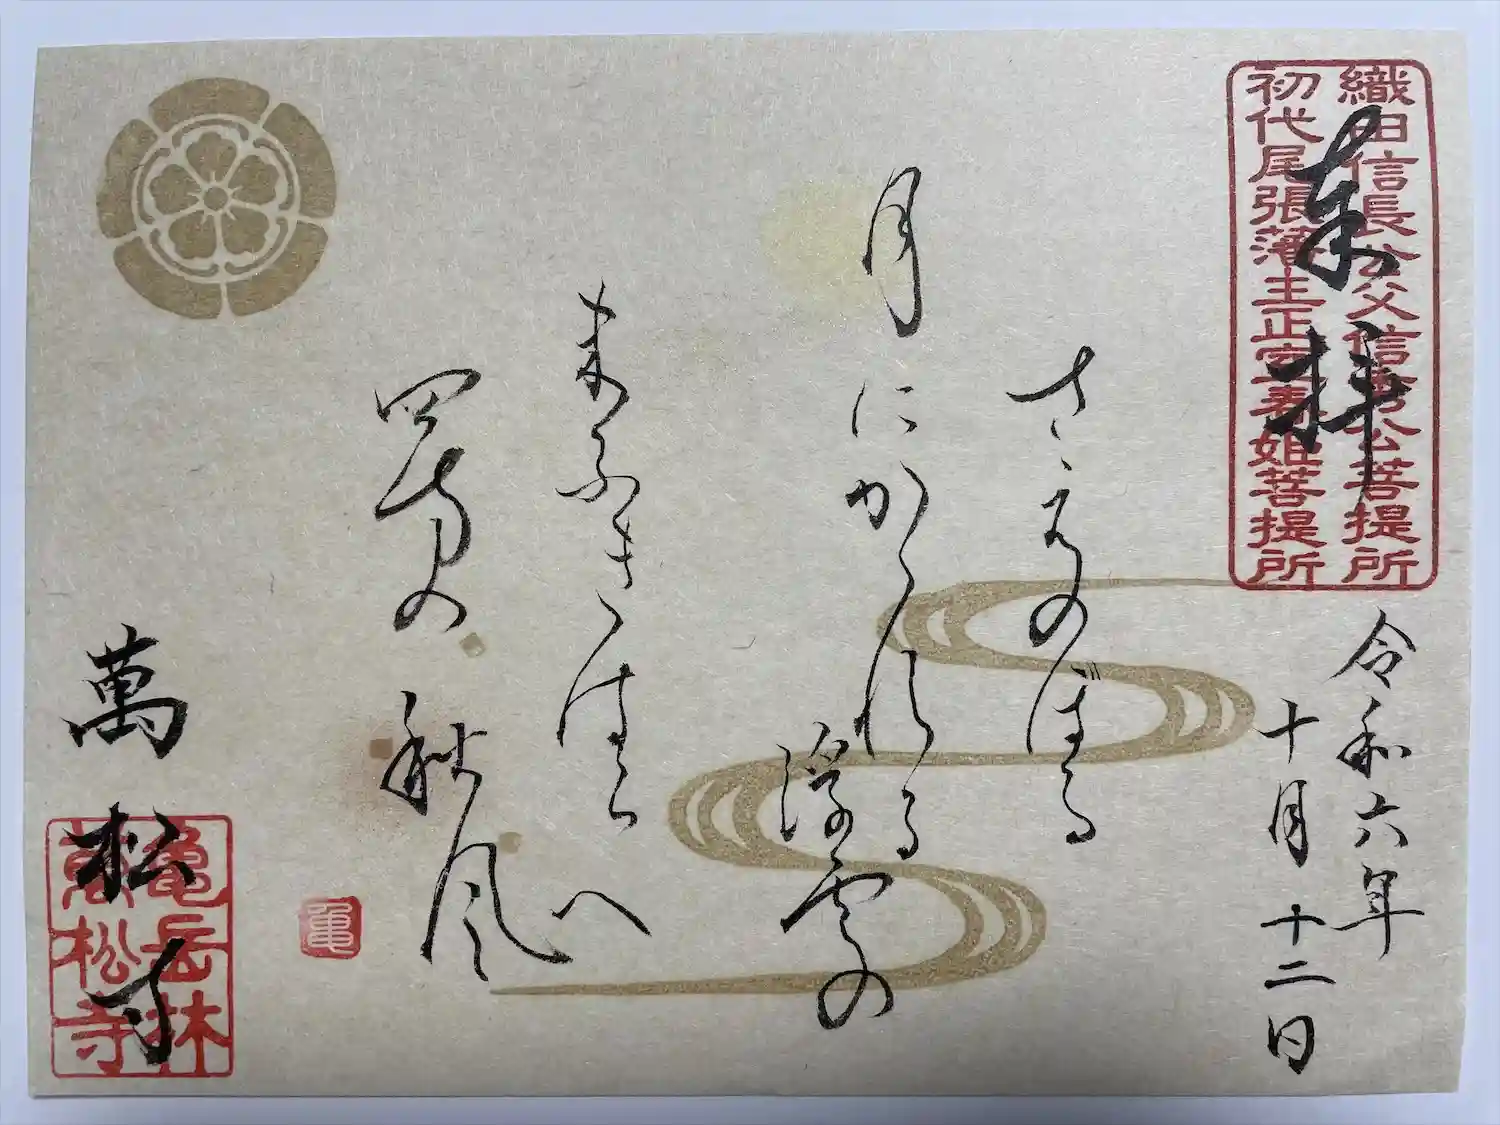 織田信長公父信秀公菩提所
初代尾張藩主正室春姫菩提所
奉拝
令和六年
十月十二日
さえのぼる
月にかゝれる
浮雲の
末ふきはらへ
四方の
秋風
亀
萬松寺
亀岳林
萬松寺